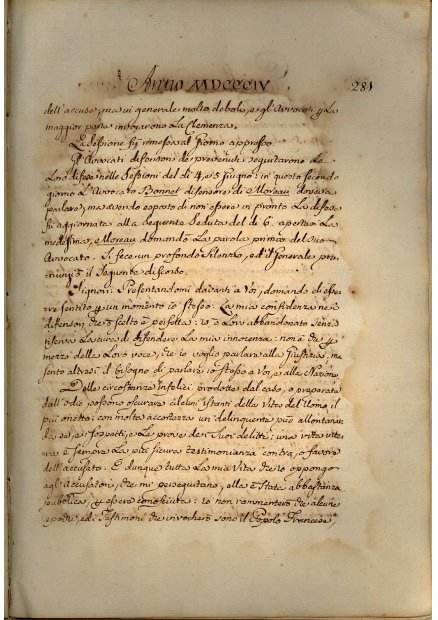 Anno MDCCCIV 281
dell'accuse, ma in generale molto debole, e gl'Avvocati p la
maggior parte invocarono la Clemenza.
La Sessione fù rimessa al giorno appresso.
Gl'Avvocati difensori de prevenuti seguitarono le
Loro difese nelle Sessioni del di 4, e 5 Giugno: in questo secondo
giorno L'Avvocato Bonnet difensore di Moreau doveva
parlare, ma avendo esposto di non essere in pronto La difesa
fù aggiornata alla seguente Seduta del di 6. aperta la
medesima, Moreau domandò La parola prima del suo
Avvocato. Si fece un profondo silenzio, ed il Generale pro-
nunziò il seguente discorso.
Signori: Presentandomi davanti a Voi, domando di esse-
re sentito p un momento io stesso. La mia confidenza ne i
difensori, che ò scelto è perfetta: io ò Loro abbandonato senza
riserva La cura di difendere La mia innocenza: non è che p
mezzo della Loro voce, che io voglio parlare alla Giustizia, ma
sento altresì il bisogno di parlare io stesso a Voi, e alla Nazione.
Delle circostanze infelici, prodotte dal caso, o preparate
dall'odio possono oscurare alcuni istanti della Vita dell'Uomo il
più onesto; con molta accortezza un delinquente può allontanar
da se, e i sospetti, e Le prove de i suoi delitti: una vita inte-
ra è sempre La più sicura testimonianza contro, o favore
dell'accusato. È dunque tutta La mia Vita che io oppongo
agl'Accusatori, che mi perseguitano, ella è stata abbastanza
pubblica, p essere conosciuta: io non rammenterò che alcune
epoche, ed i Testimoni che invocherò sono il Popolo Francese,